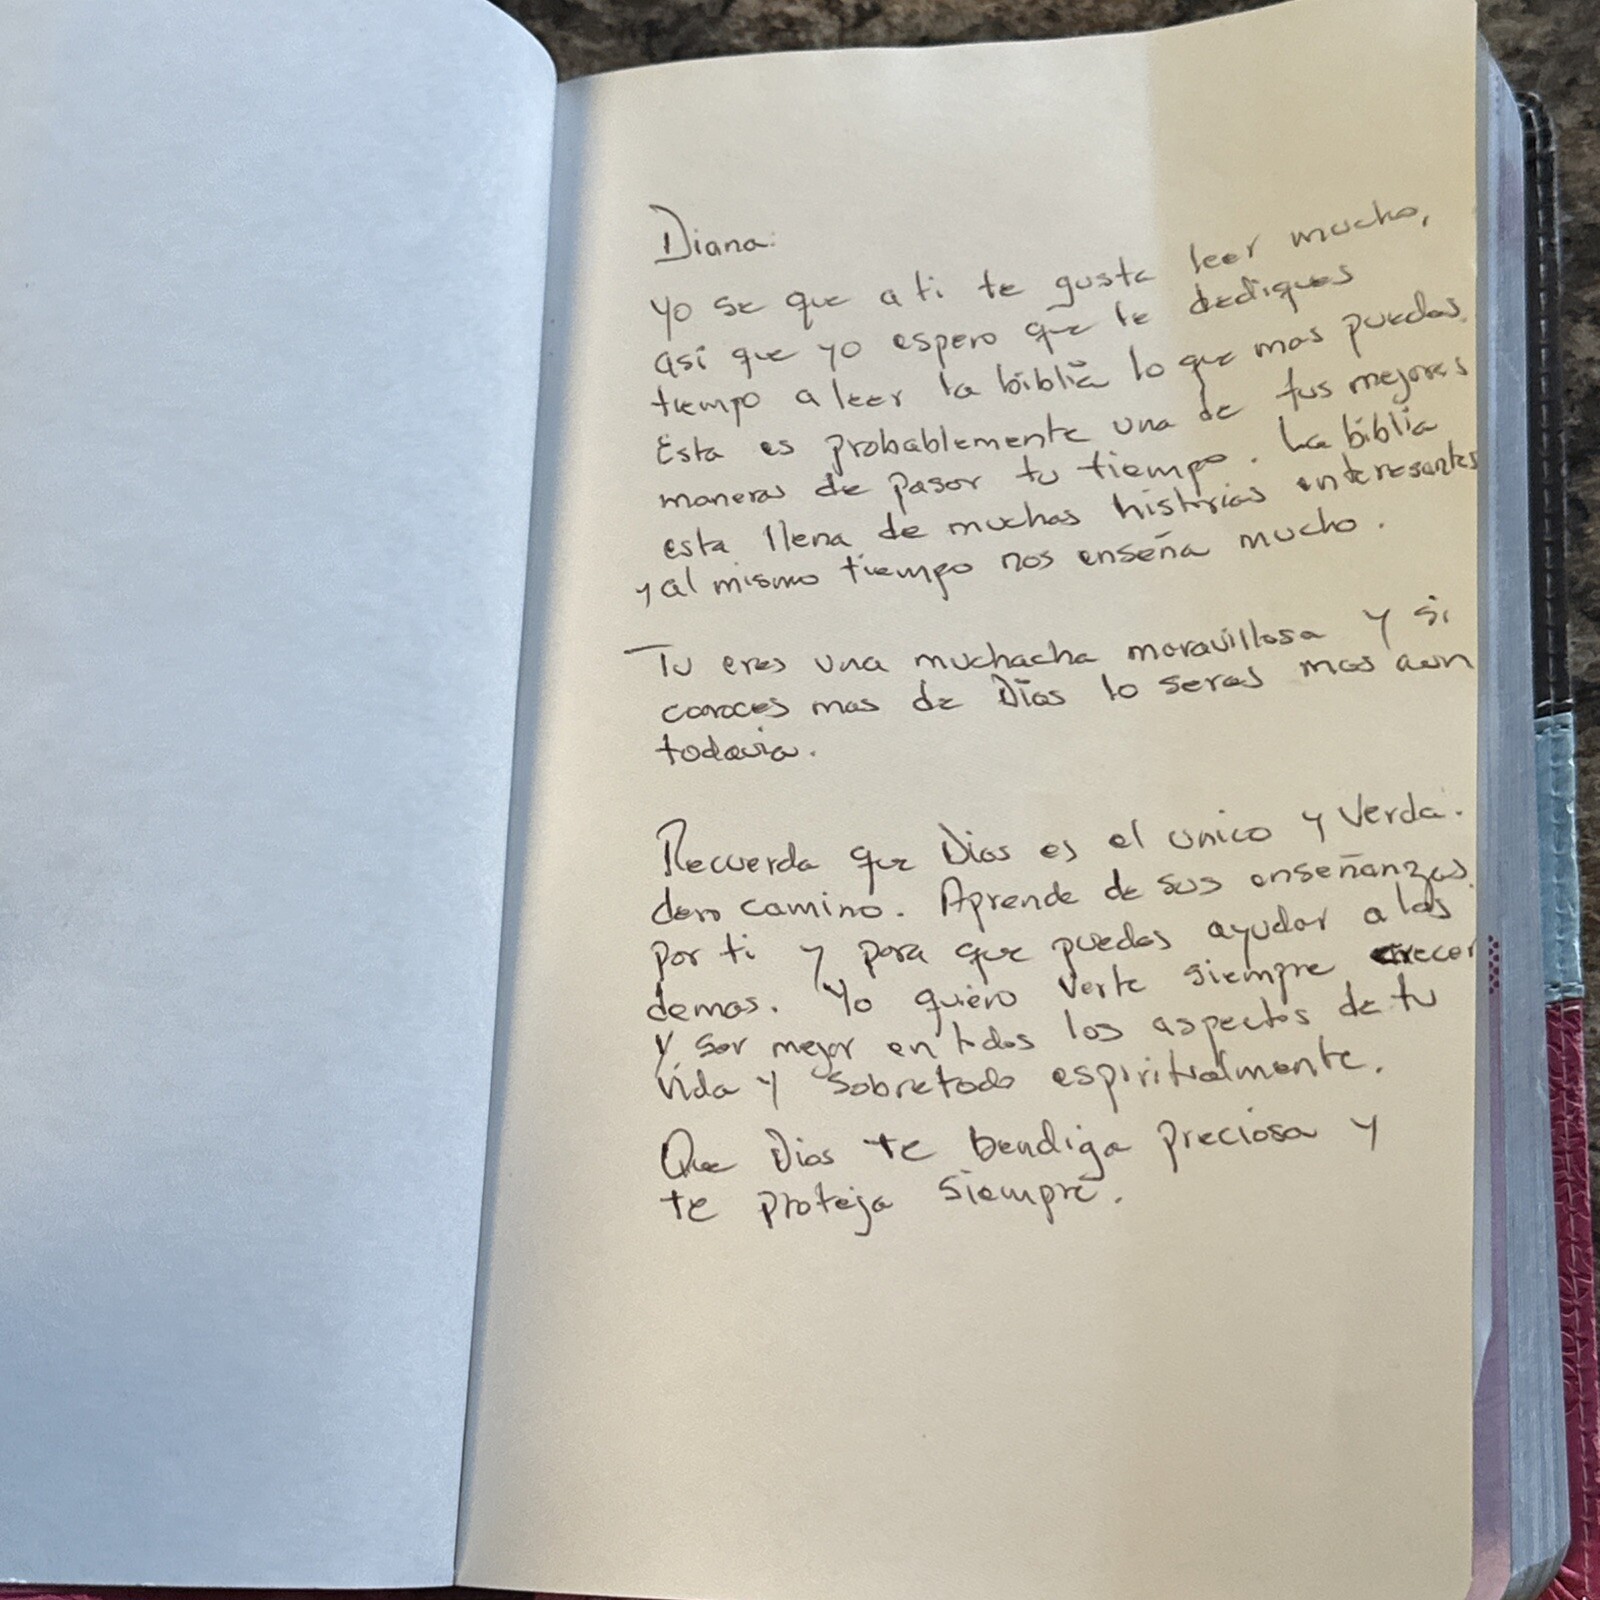 Diana:
Yo se que a ti te gusta leer mucho,
asi que yo espero que le dediques
tiempo a leer la biblia lo que mas puedas.
Esta es probablemente una de tus mejores
maneras de pasar tu tiempo. La biblia
esta llena de muchas historias interesantes
y al mismo tiempo nos enseña mucho.
Tu eres una muchacha maravillosa y si
conoces mas de Dios lo seras mas aun
todavia.
Recuerda que Dios es el unico y verda-
dero camino. Aprende de sus enseñanzas
por ti y para que puedas ayudar a los
demas. Yo quiero verte siempre crecer
y ser mejor en todos los aspectos de tu
vida y sobretodo espiritualmente.
Que Dios te bendiga preciosa y
te proteja siempre.